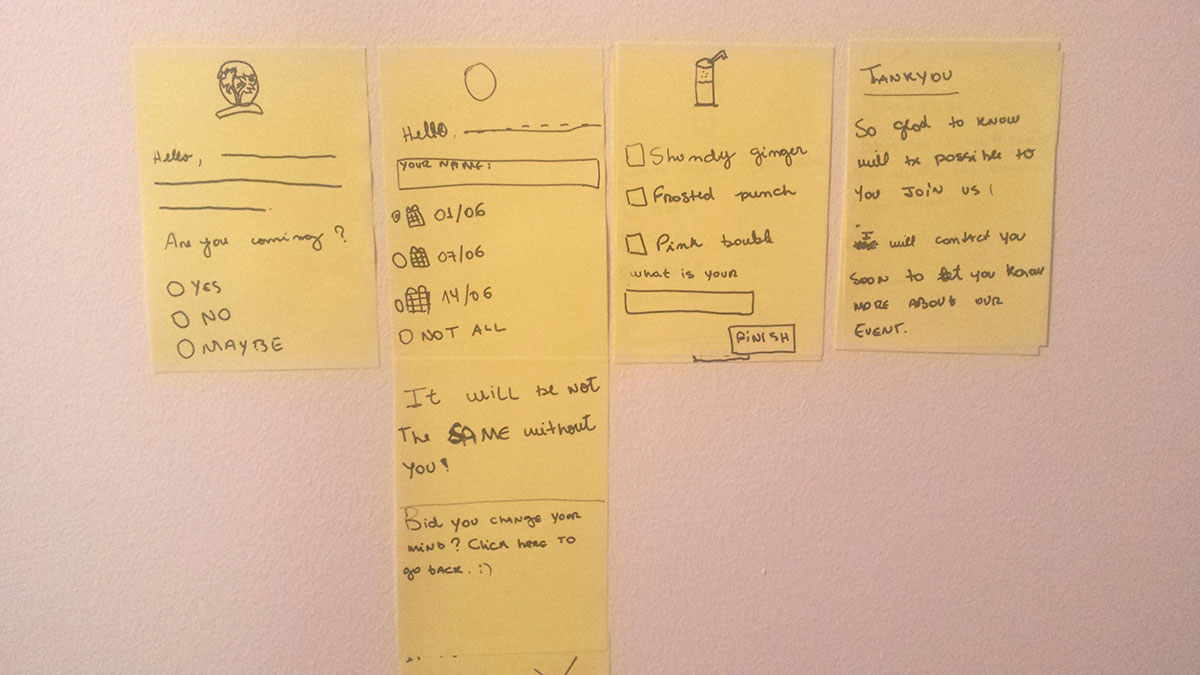 Hello,
Are you coming?
YES
NO
MAYBE
Hello,
YOUR NAME:
01/06
07/06
14/06
NOT ALL
It will be not
The SAME without
you!
Did you change your
mind? Click here to
go back. :)
Shundy ginger
Frosted punch
Pink bouble
what is your
FINISH
THANKYOU
So glad to know
will be possible to
you join us!
I will contact you
soon to let you know
more about our
event.